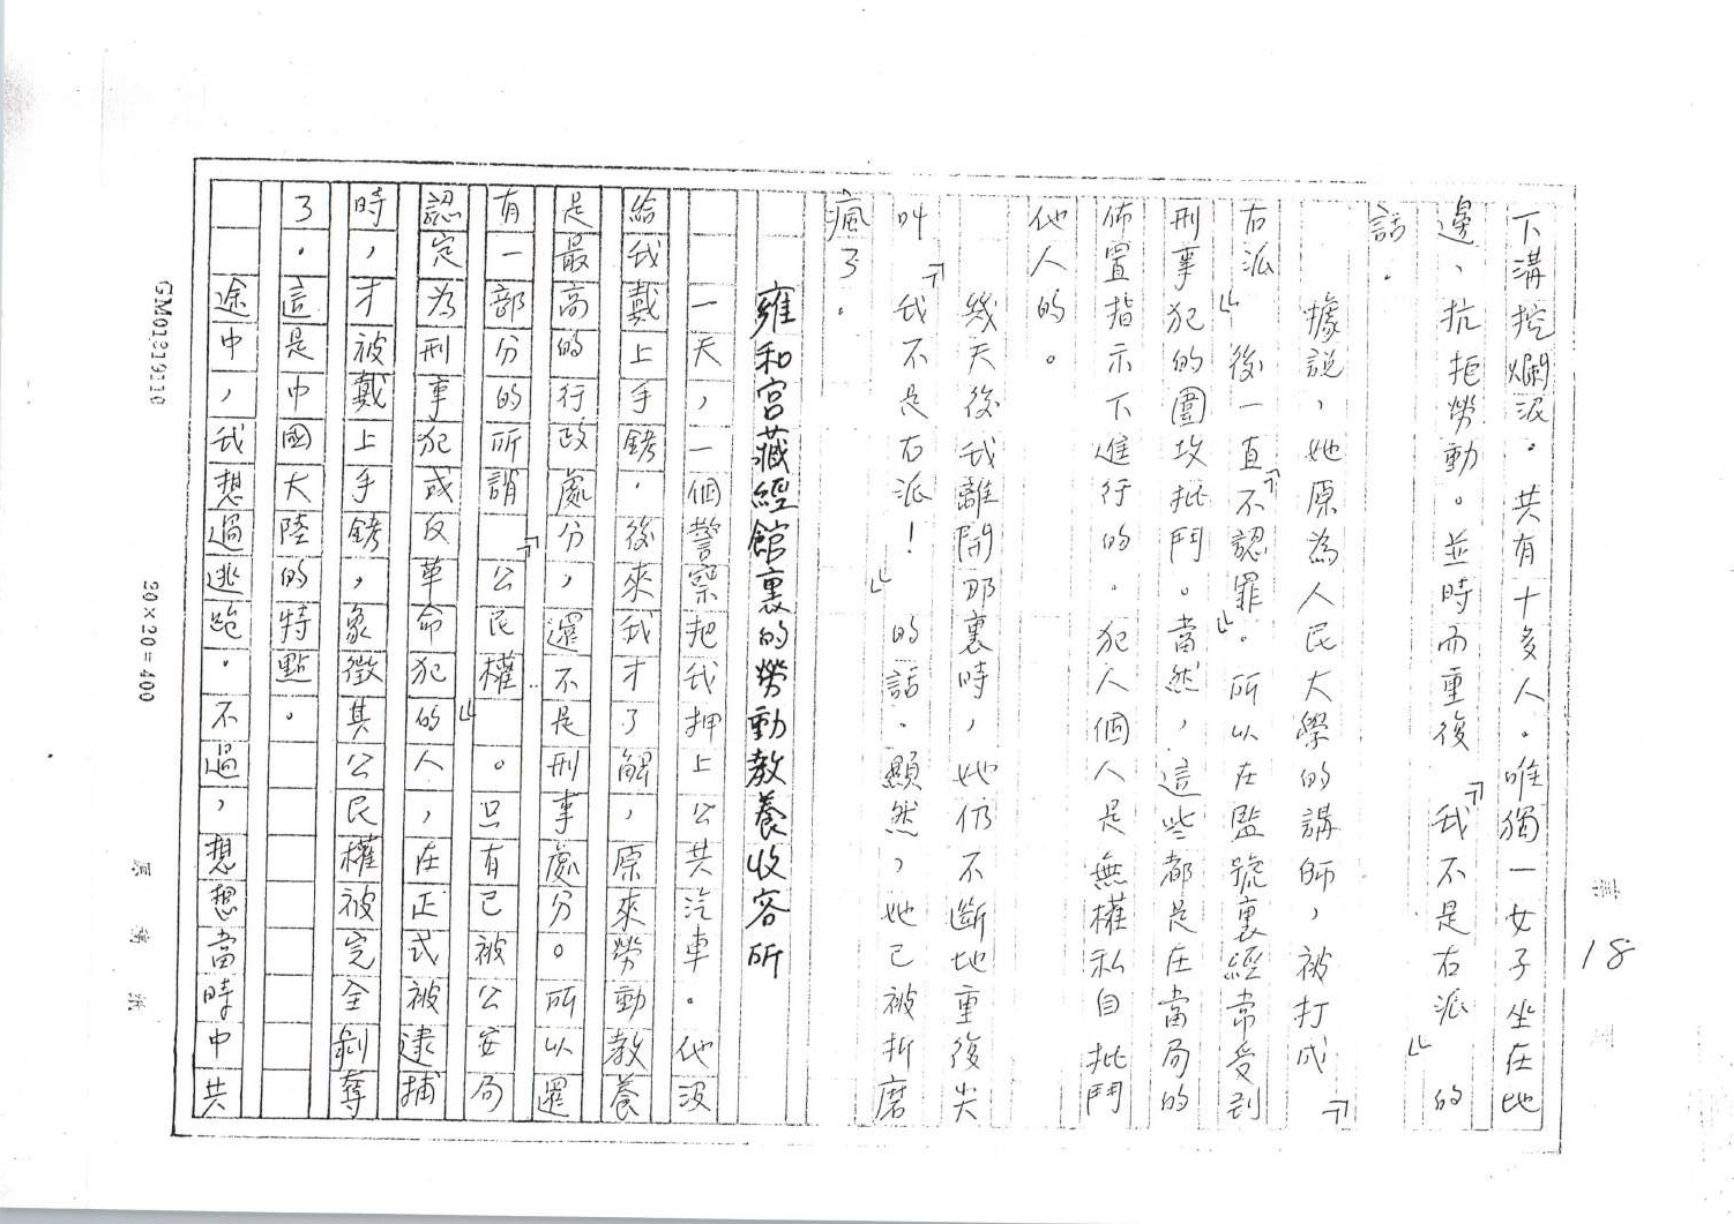 第 18 頁
下溝挖爛泥。共有十多人。唯獨一女子坐在地
邊、抗拒勞動。並時而重復『我不是右派』的
話。
據説，她原為人民大學的講師，被打成『
右派』後一直『不認罪』。所以在監號裏經常受到
刑事犯的圍攻批鬥。當然，這些都是在當局的
佈置指示下進行的。犯人個人是無權私自批鬥
他人的。
幾天後我離開那裏時，她仍不斷地重復尖
叫『我不是右派！』的話。顯然，她已被折磨
瘋了。
雍和宮藏經館裏的勞動教養收容所
一天，一個警察把我押上公共汽車。他没
給我戴上手銬。後來我才了解，原來勞動教養
是最高的行政處分，還不是刑事處分。所以還
有一部分的所謂『公民權』。只有已被公安局
認定為刑事犯或反革命犯的人，在正式被逮捕
時，才被戴上手銬，象徵其公民權被完全剝奪
了。這是中國大陸的特點。
途中，我想過逃跑。不過，想想當時中共
GM01319110
20×20=400
原稿紙